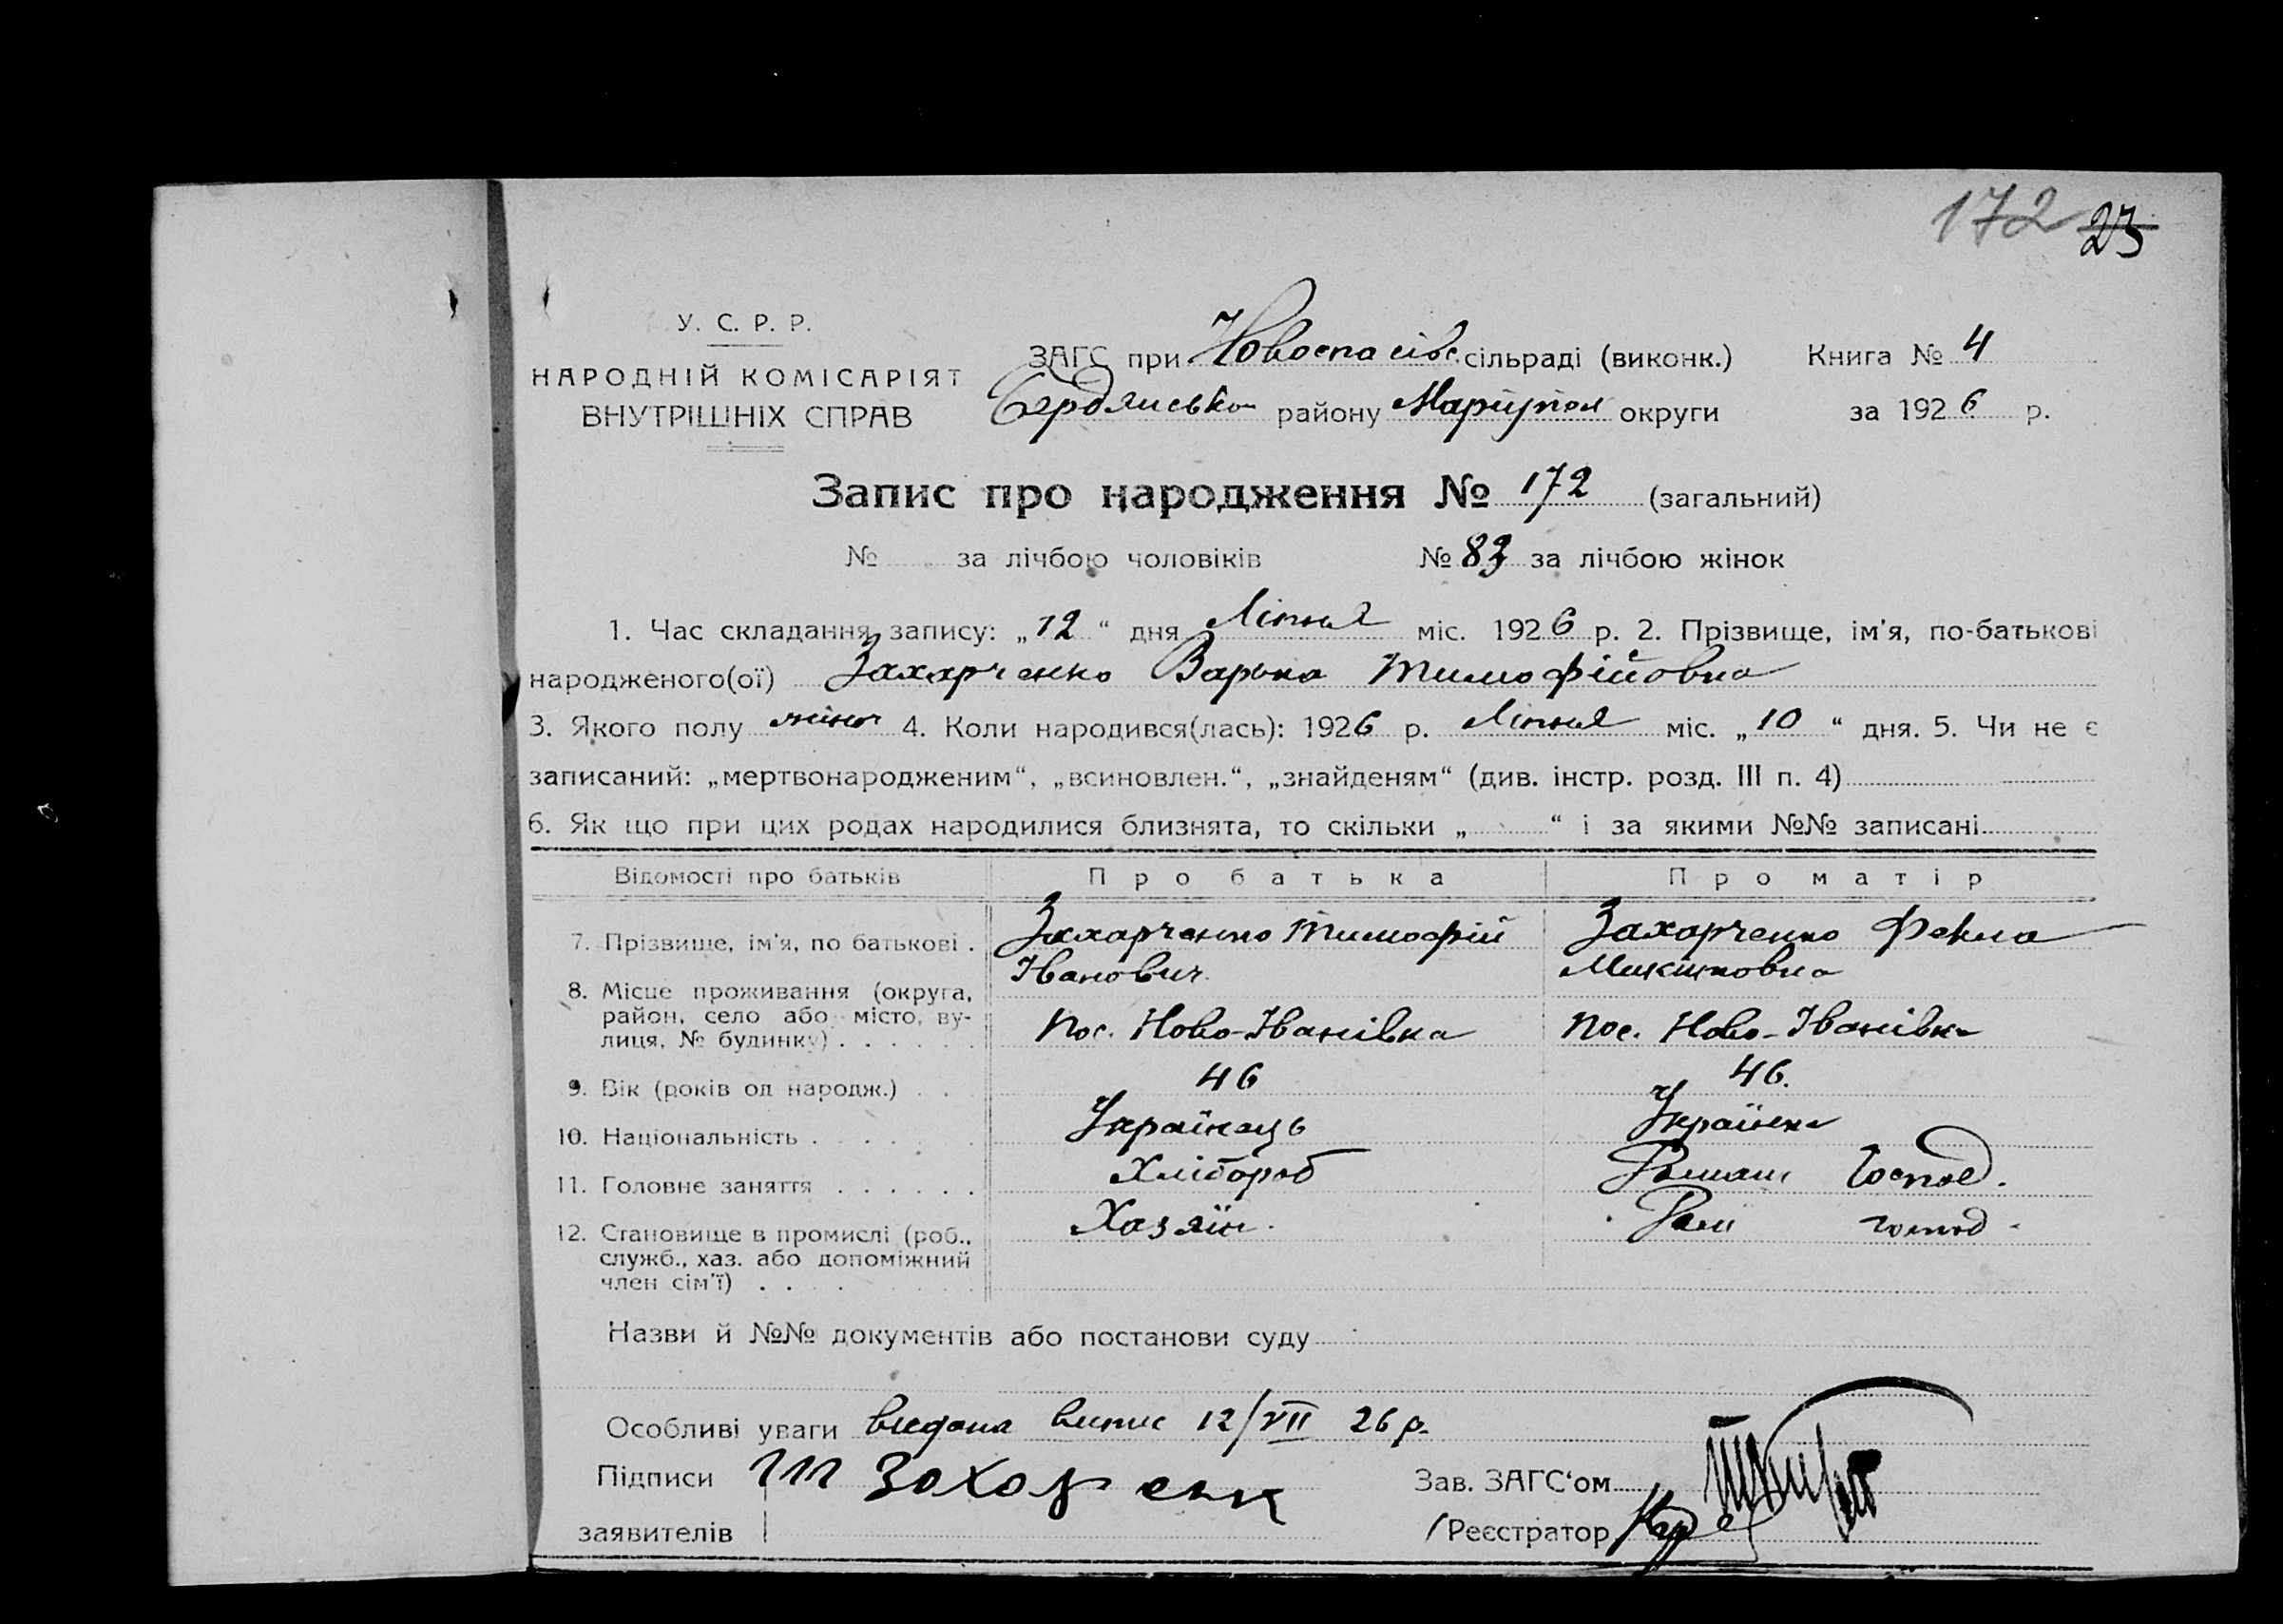 172 23
У. С. Р. Р.
НАРОДНІЙ КОМІСАРІЯТ
ВНУТРІШНІХ СПРАВ
ЗАГС при Новоспасівс. сільраді (виконк.) Книга № 4
Бердянсько району Маріупол округи за 1926 р.
Запис про народження № 172 (загальний)
№ за лічбою чоловіків № 83 за лічбою жінок
1. Час складання запису: „12“ дня Липня міс. 1926 р. 2. Прізвище, ім'я, по-батькові
народженого(ої) Захарченко Варька Тимофійовна
3. Якого полу жіноч 4. Коли народився(лась): 1926 р. Липня міс. „10“ дня. 5. Чи не є
записаний: „мертвонародженим“, „всиновлен.“, „знайденям“ (див. інстр. розд. III п. 4)
6. Як що при цих родах народилися близнята, то скільки „ “ і за якими №№ записані
Відомості про батьків Про батька Про матір
7. Прізвище, ім'я, по батькові . Захарченко Тимофій Захарченко Фекла
Іванович Микитовна
8. Місце проживання (округа,
район, село або місто, ву-
лиця, № будинку) . . . . . . Пос. Ново-Іванівка Пос. Ново-Іванівка
9. Вік (років од народж.) . . . 46 46.
10. Національність . . . . . . . Українець Українка
11. Головне заняття . . . . . . Хлібороб Домаш господ.
12. Становище в промислі (роб., Хазяїн. господ.
служб., хаз. або допоміжний
член сім'ї) . . . .
Назви й №№ документів або постанови суду
Особливі уваги видана випис 12/VII 26 р.
Підписи Т Захарченк Зав. ЗАГС‘ом
заявителів Реєстратор